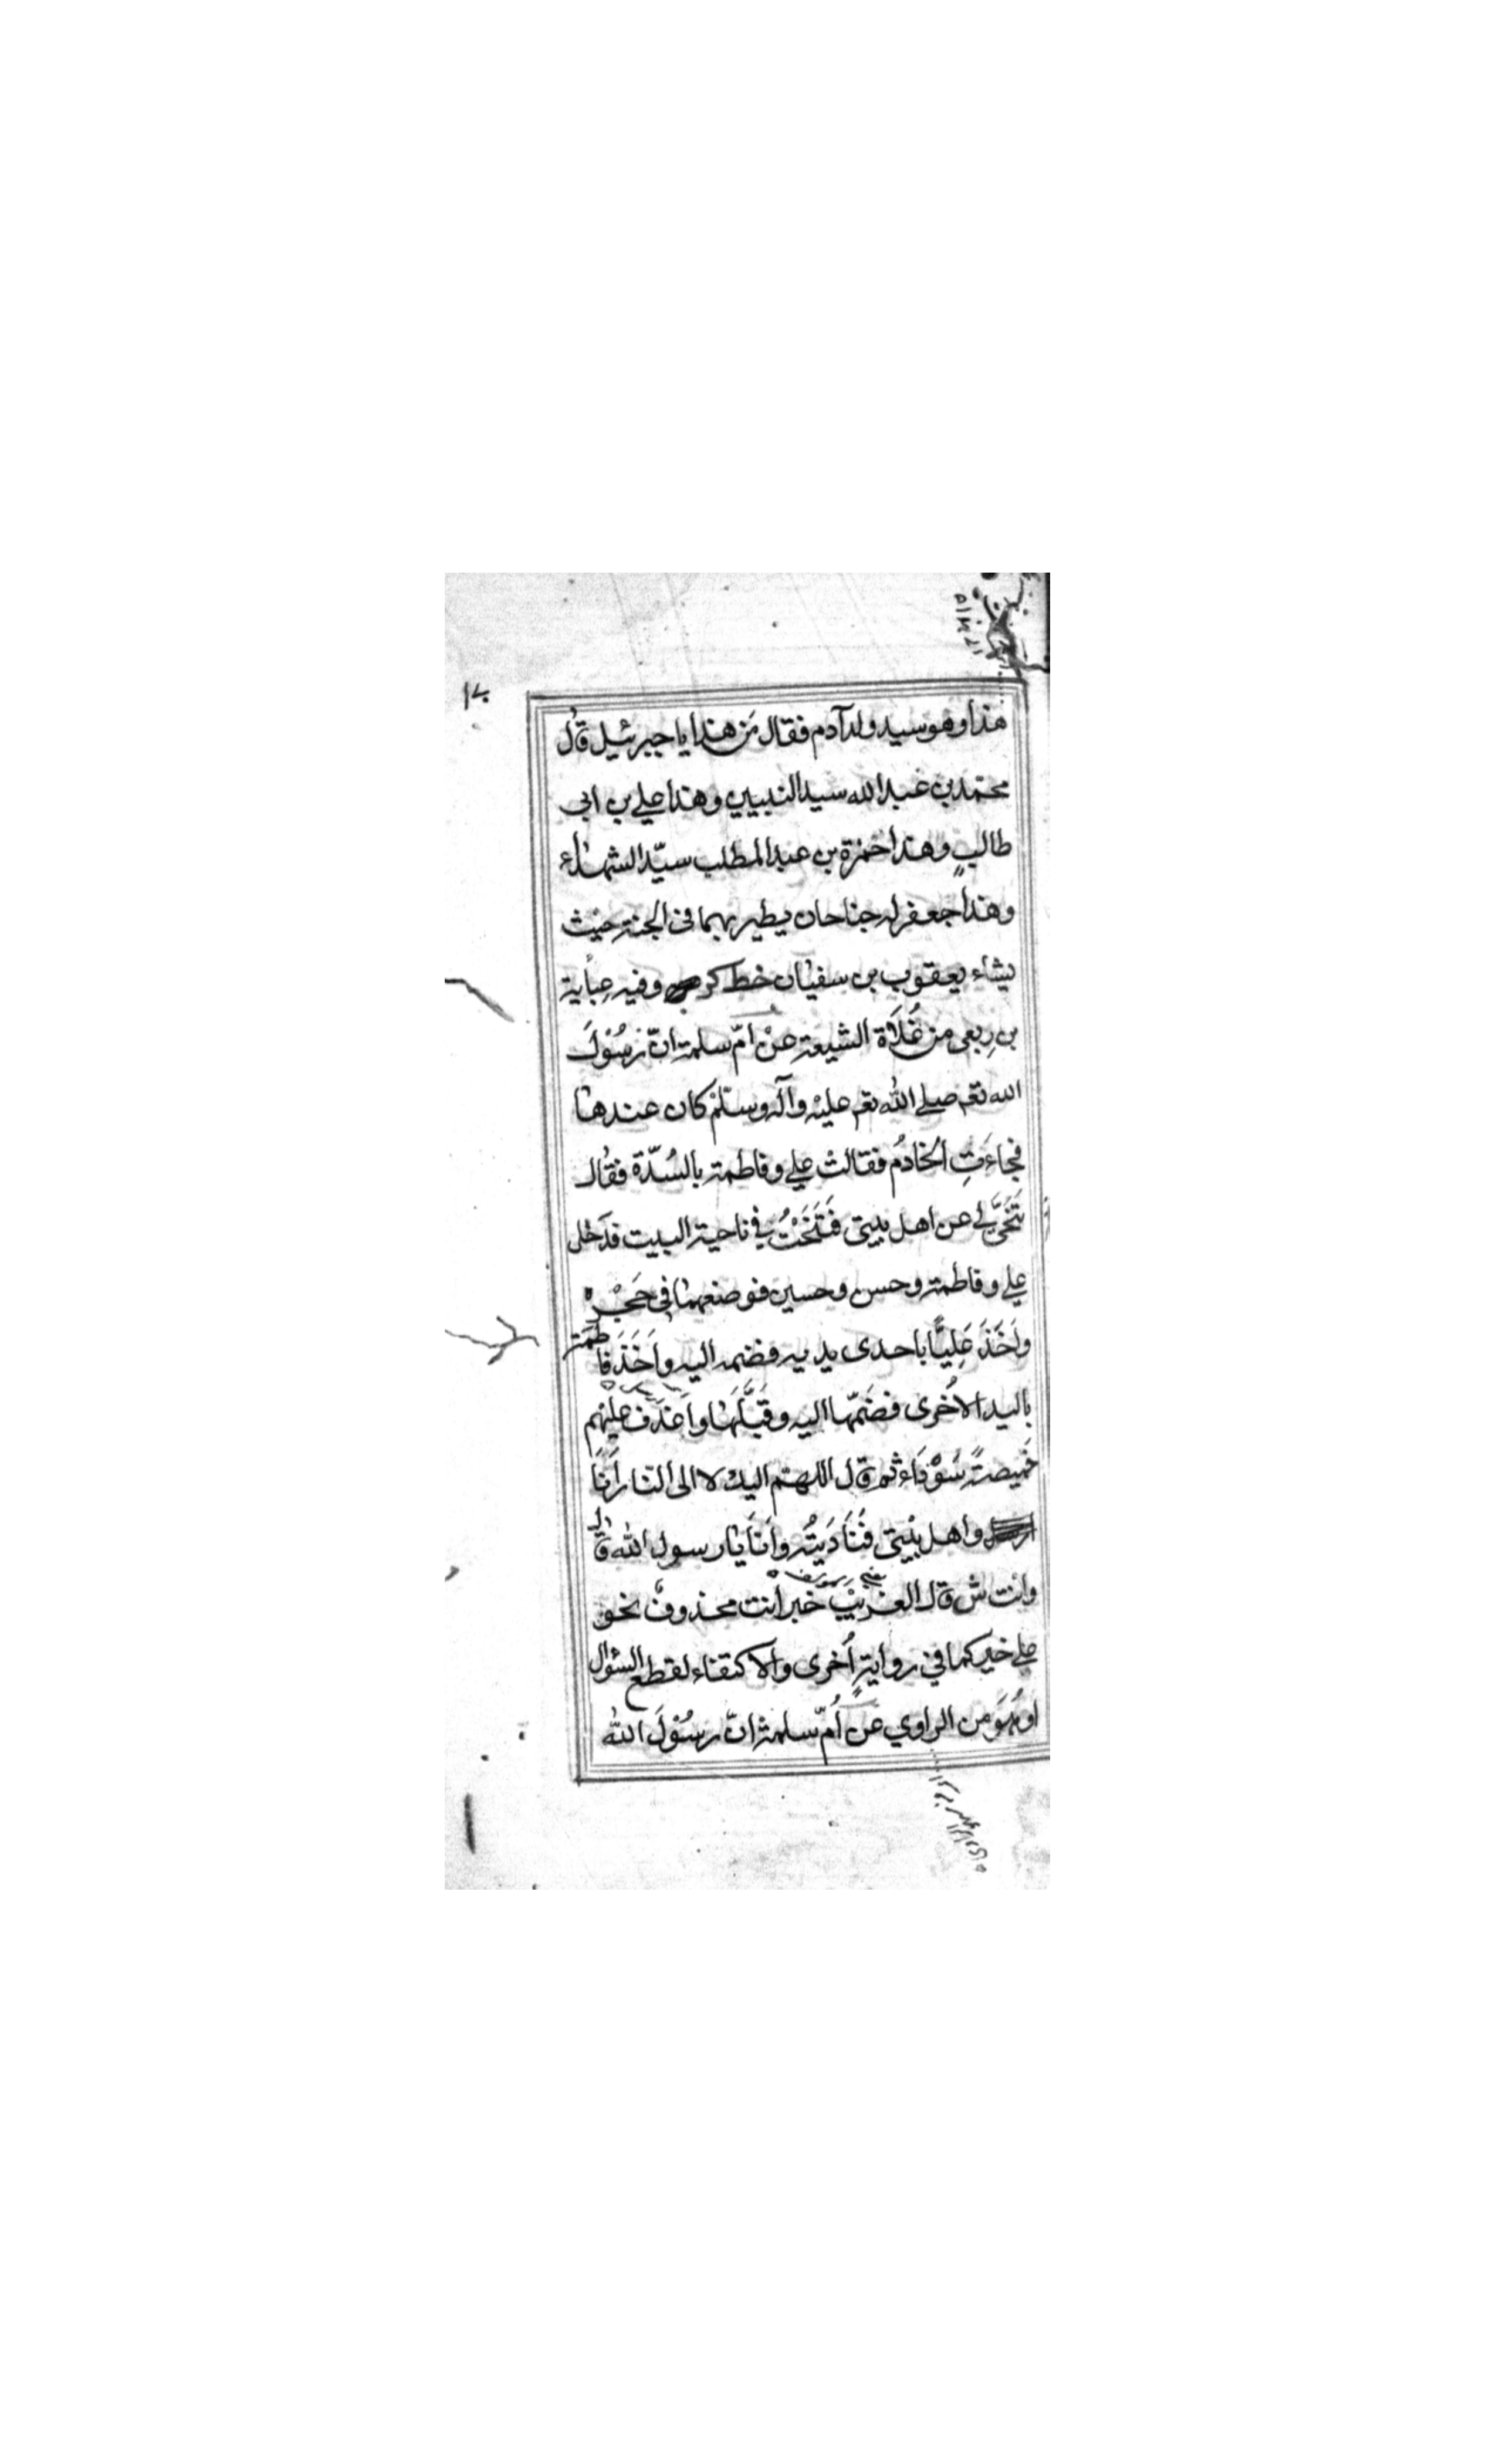 ١٧
هذا وهو سيد ولد آدم فقال مَن هذا يا جبرئيل قال
محمّد بن عبد الله سيد النبيين وهذا علي بن ابى
طالبٍ وهذا حمزة بن عبد المطلب سيّد الشهداء
وهذا جعفر له جناحان يطير بهما فى الجنة حيث
يشاء يعقوب بن سفيان خط كر وفيه عباية
بن رِبعى من غُلَاة الشيعة عَنْ امّ سلمة انّ رَسُوْلَ
الله تعم صلى الله تعم عليْه وآله وسلّم كان عندها
فجاءَتِ الخادمُ فقالت على وفاطمة بالسُدّة فقال
تَنَحَّىْ لى عن اهل بيتى فَتَنَحَّيْتُ فى ناحية البيت فدَخل
على وفاطمة وحسن وحسين فوضعهما فى حَجْرِه
واَخَذَ عَلِيًّا باحدى يديه فضمه اليه واَخَذَ فاطمَة
باليد الاُخرى فضَمّها اليه وقَبَّلَها واَغدَف عليْهم
خَميصةً سَوْدَاء ثم قال اللهم اليك لا الى النار اَنَا
واهل بيْتى فَنَادَيتُه واَنَا يَا رسول الله قال
وانت ش قال الغريْب خبر اَنت محذوفٌ نحو
على خير كما في روايةٍ اُخرى والاكتفاء لقطع السّؤال
او هُوَ من الراوي عَن اُمّ سلمة انّ رسُوْلَ الله